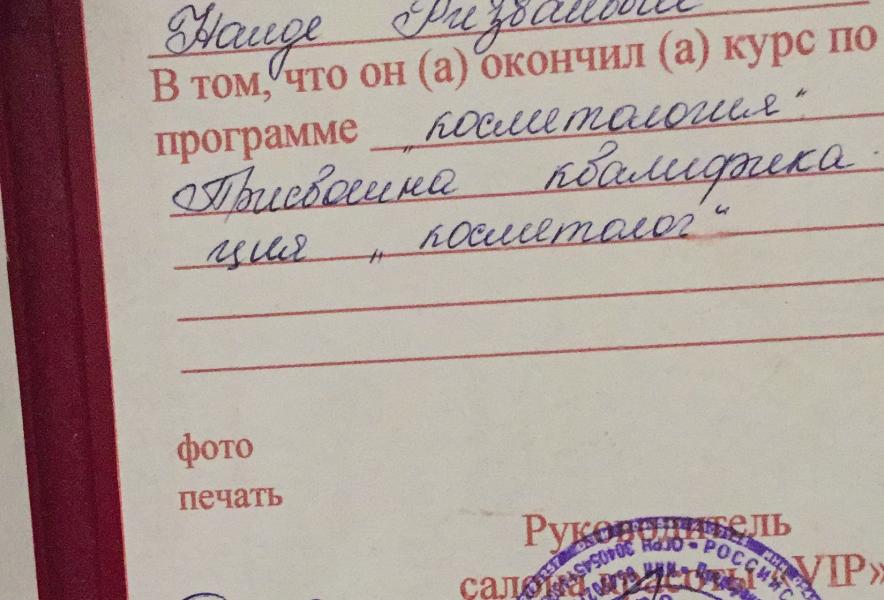 Наиде Ризвановн
В том, что он (а) окончил (а) курс по
программе „косметология“
Присвоина квалифика
ция „косметолог“
фото
печать
Руководитель
салона красоты «VIP»
ОГРН
РОССИЙС
ИНН